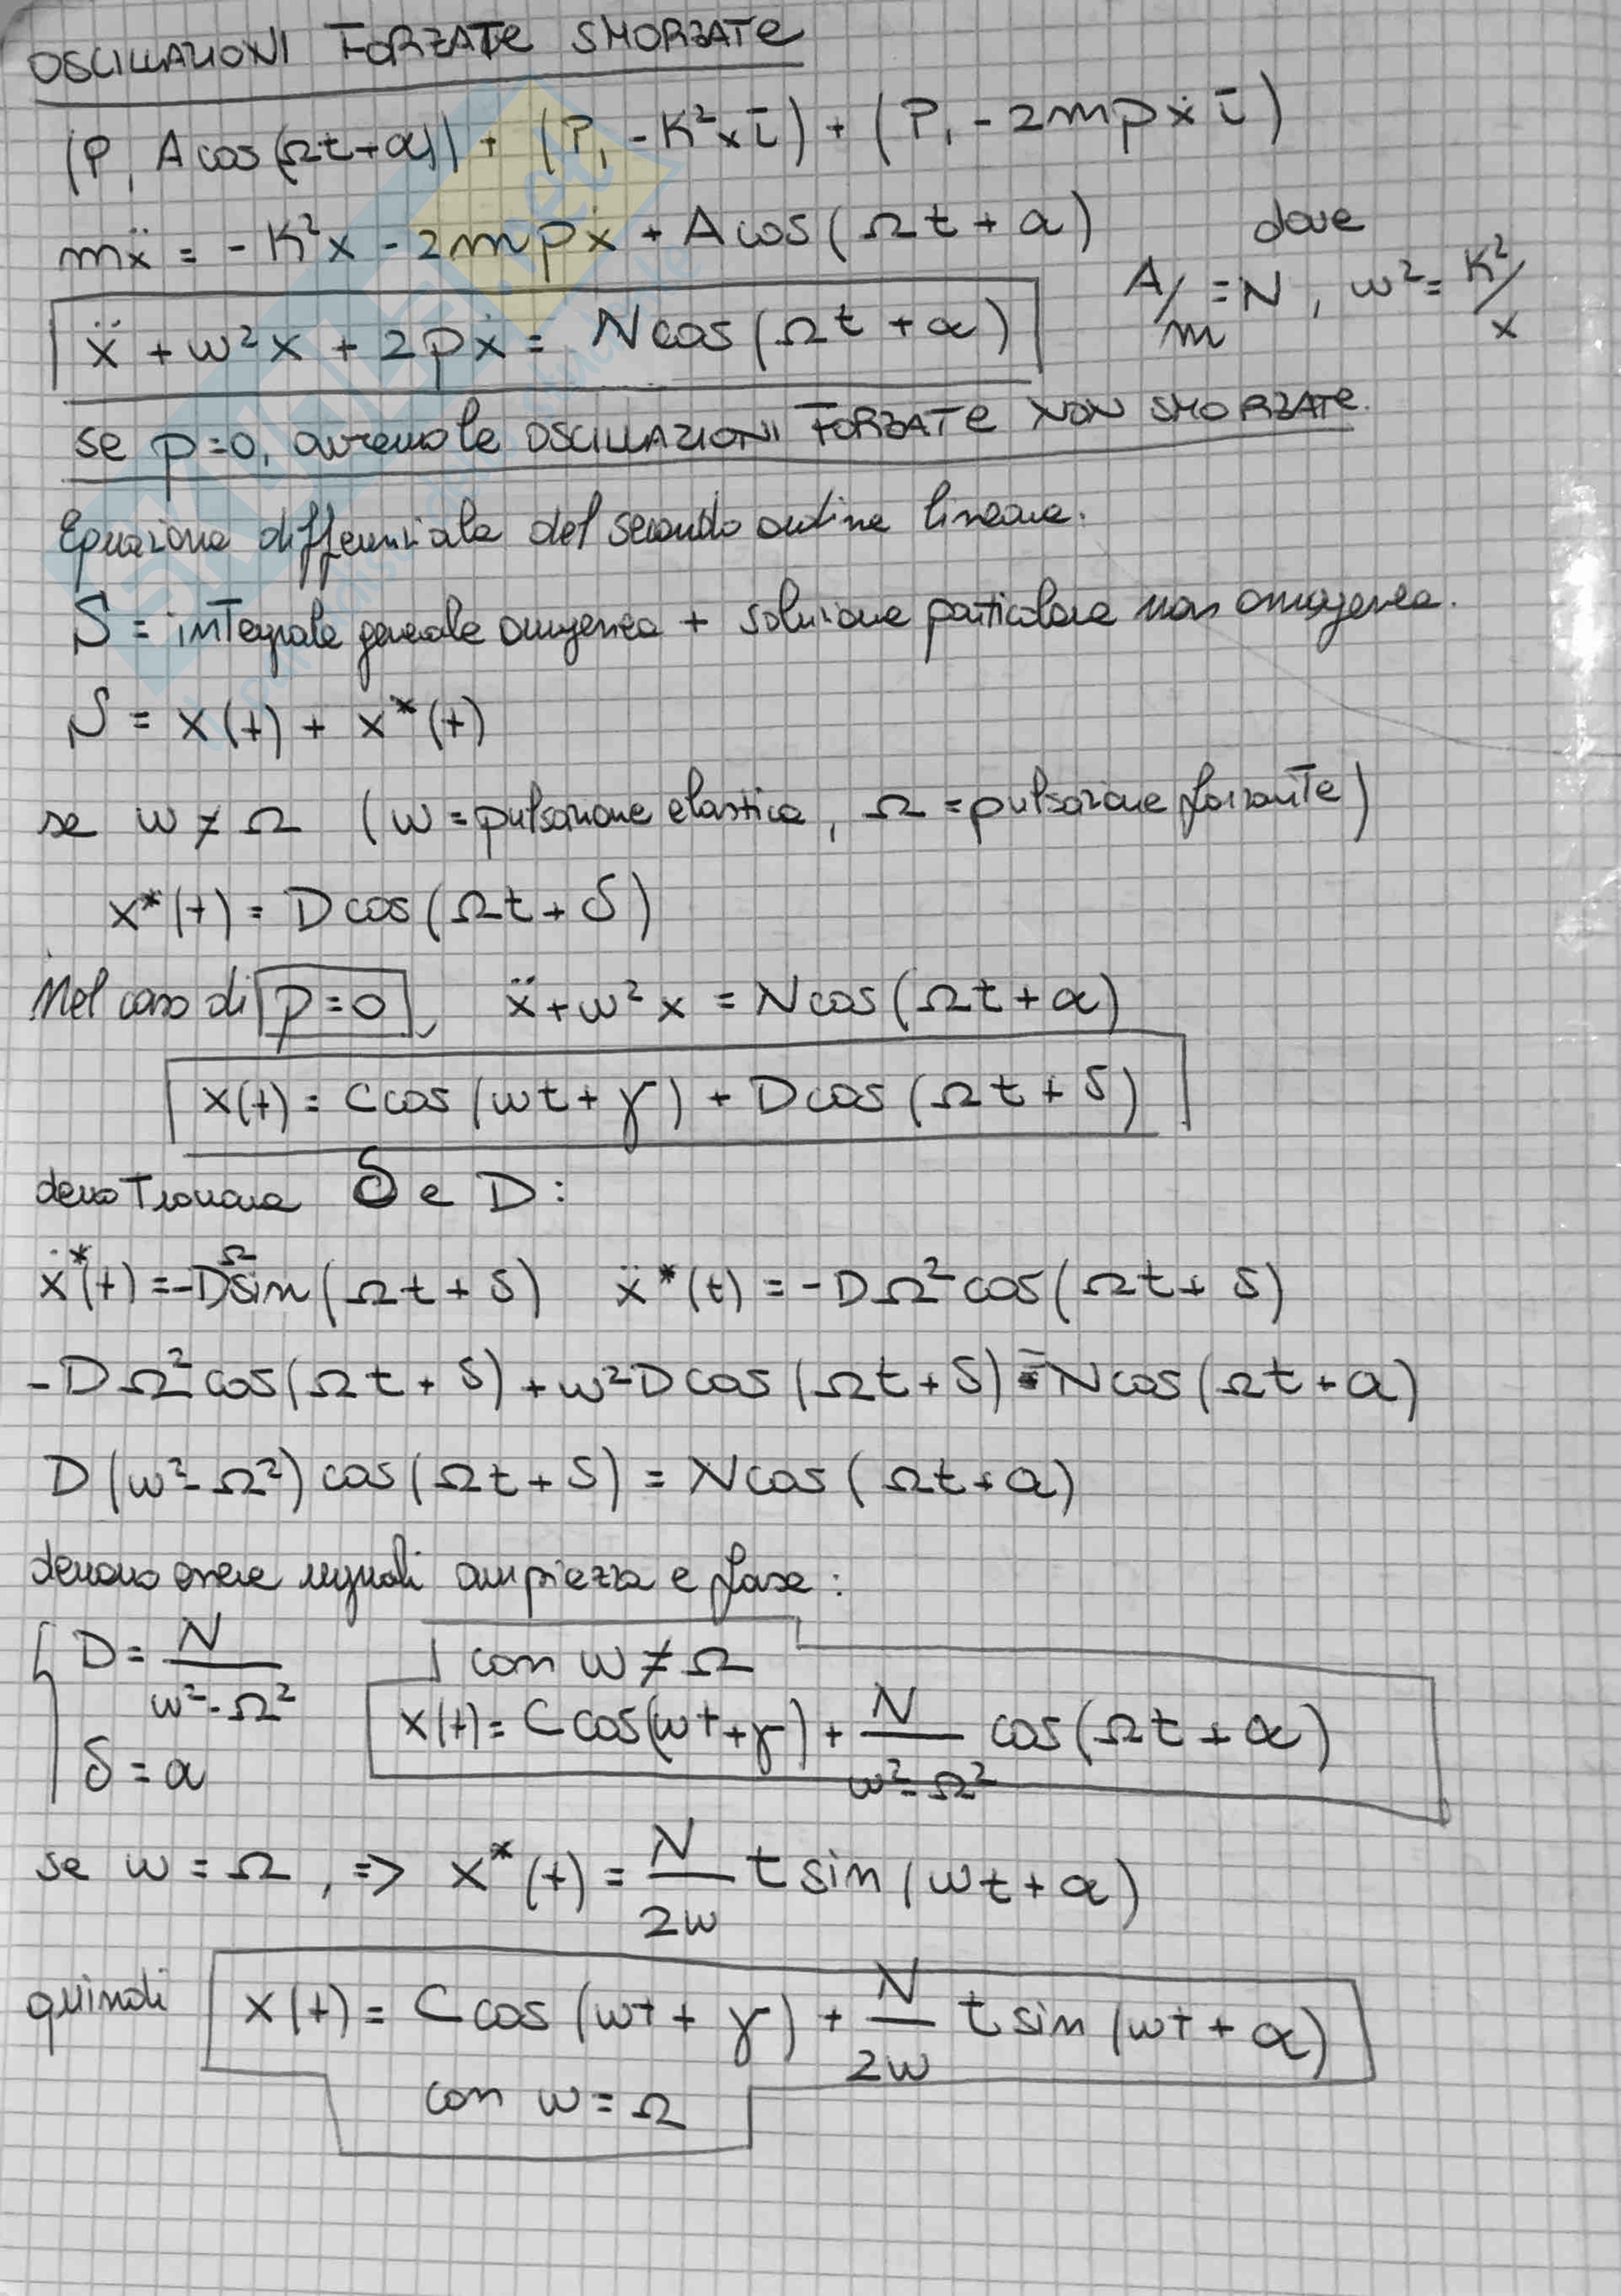 OSCILLAZIONI FORZATE SMORZATE
(P, A cos(Ωt+α)) + (P, -K²x i̅) + (P, -2mpẋ i̅)
mẍ = -K²x - 2mpẋ + A cos(Ωt + α) dove
ẍ + ω²x + 2pẋ = N cos(Ωt + α) A/m = N, ω² = K²/x
se p=0, avremo le OSCILLAZIONI FORZATE NON SMORZATE.
Equazione differenziale del secondo ordine lineare.
S = integrale generale omogenea + soluzione particolare non omogenea.
S = x(t) + x*(t)
se ω ≠ Ω (ω = pulsazione elastica, Ω = pulsazione forzante)
x*(t) = D cos(Ωt + δ)
Nel caso di p=0, ẍ + ω²x = N cos(Ωt + α)
x(t) = C cos(ωt + γ) + D cos(Ωt + δ)
devo trovare δ e D:
ẋ*(t) = -DΩ sin(Ωt + δ) ẍ*(t) = -DΩ² cos(Ωt + δ)
-DΩ² cos(Ωt + δ) + ω²D cos(Ωt + δ) = N cos(Ωt + α)
D(ω² - Ω²) cos(Ωt + δ) = N cos(Ωt + α)
devono essere uguali ampiezza e fase:
{ D = N/(ω² - Ω²) con ω ≠ Ω
δ = α x(t) = C cos(ωt + γ) + N/(ω² - Ω²) cos(Ωt + α)
se ω = Ω, => x*(t) = N/2ω t sin(ωt + α)
quindi x(t) = C cos(ωt + γ) + N/2ω t sin(ωt + α)
con ω = Ω